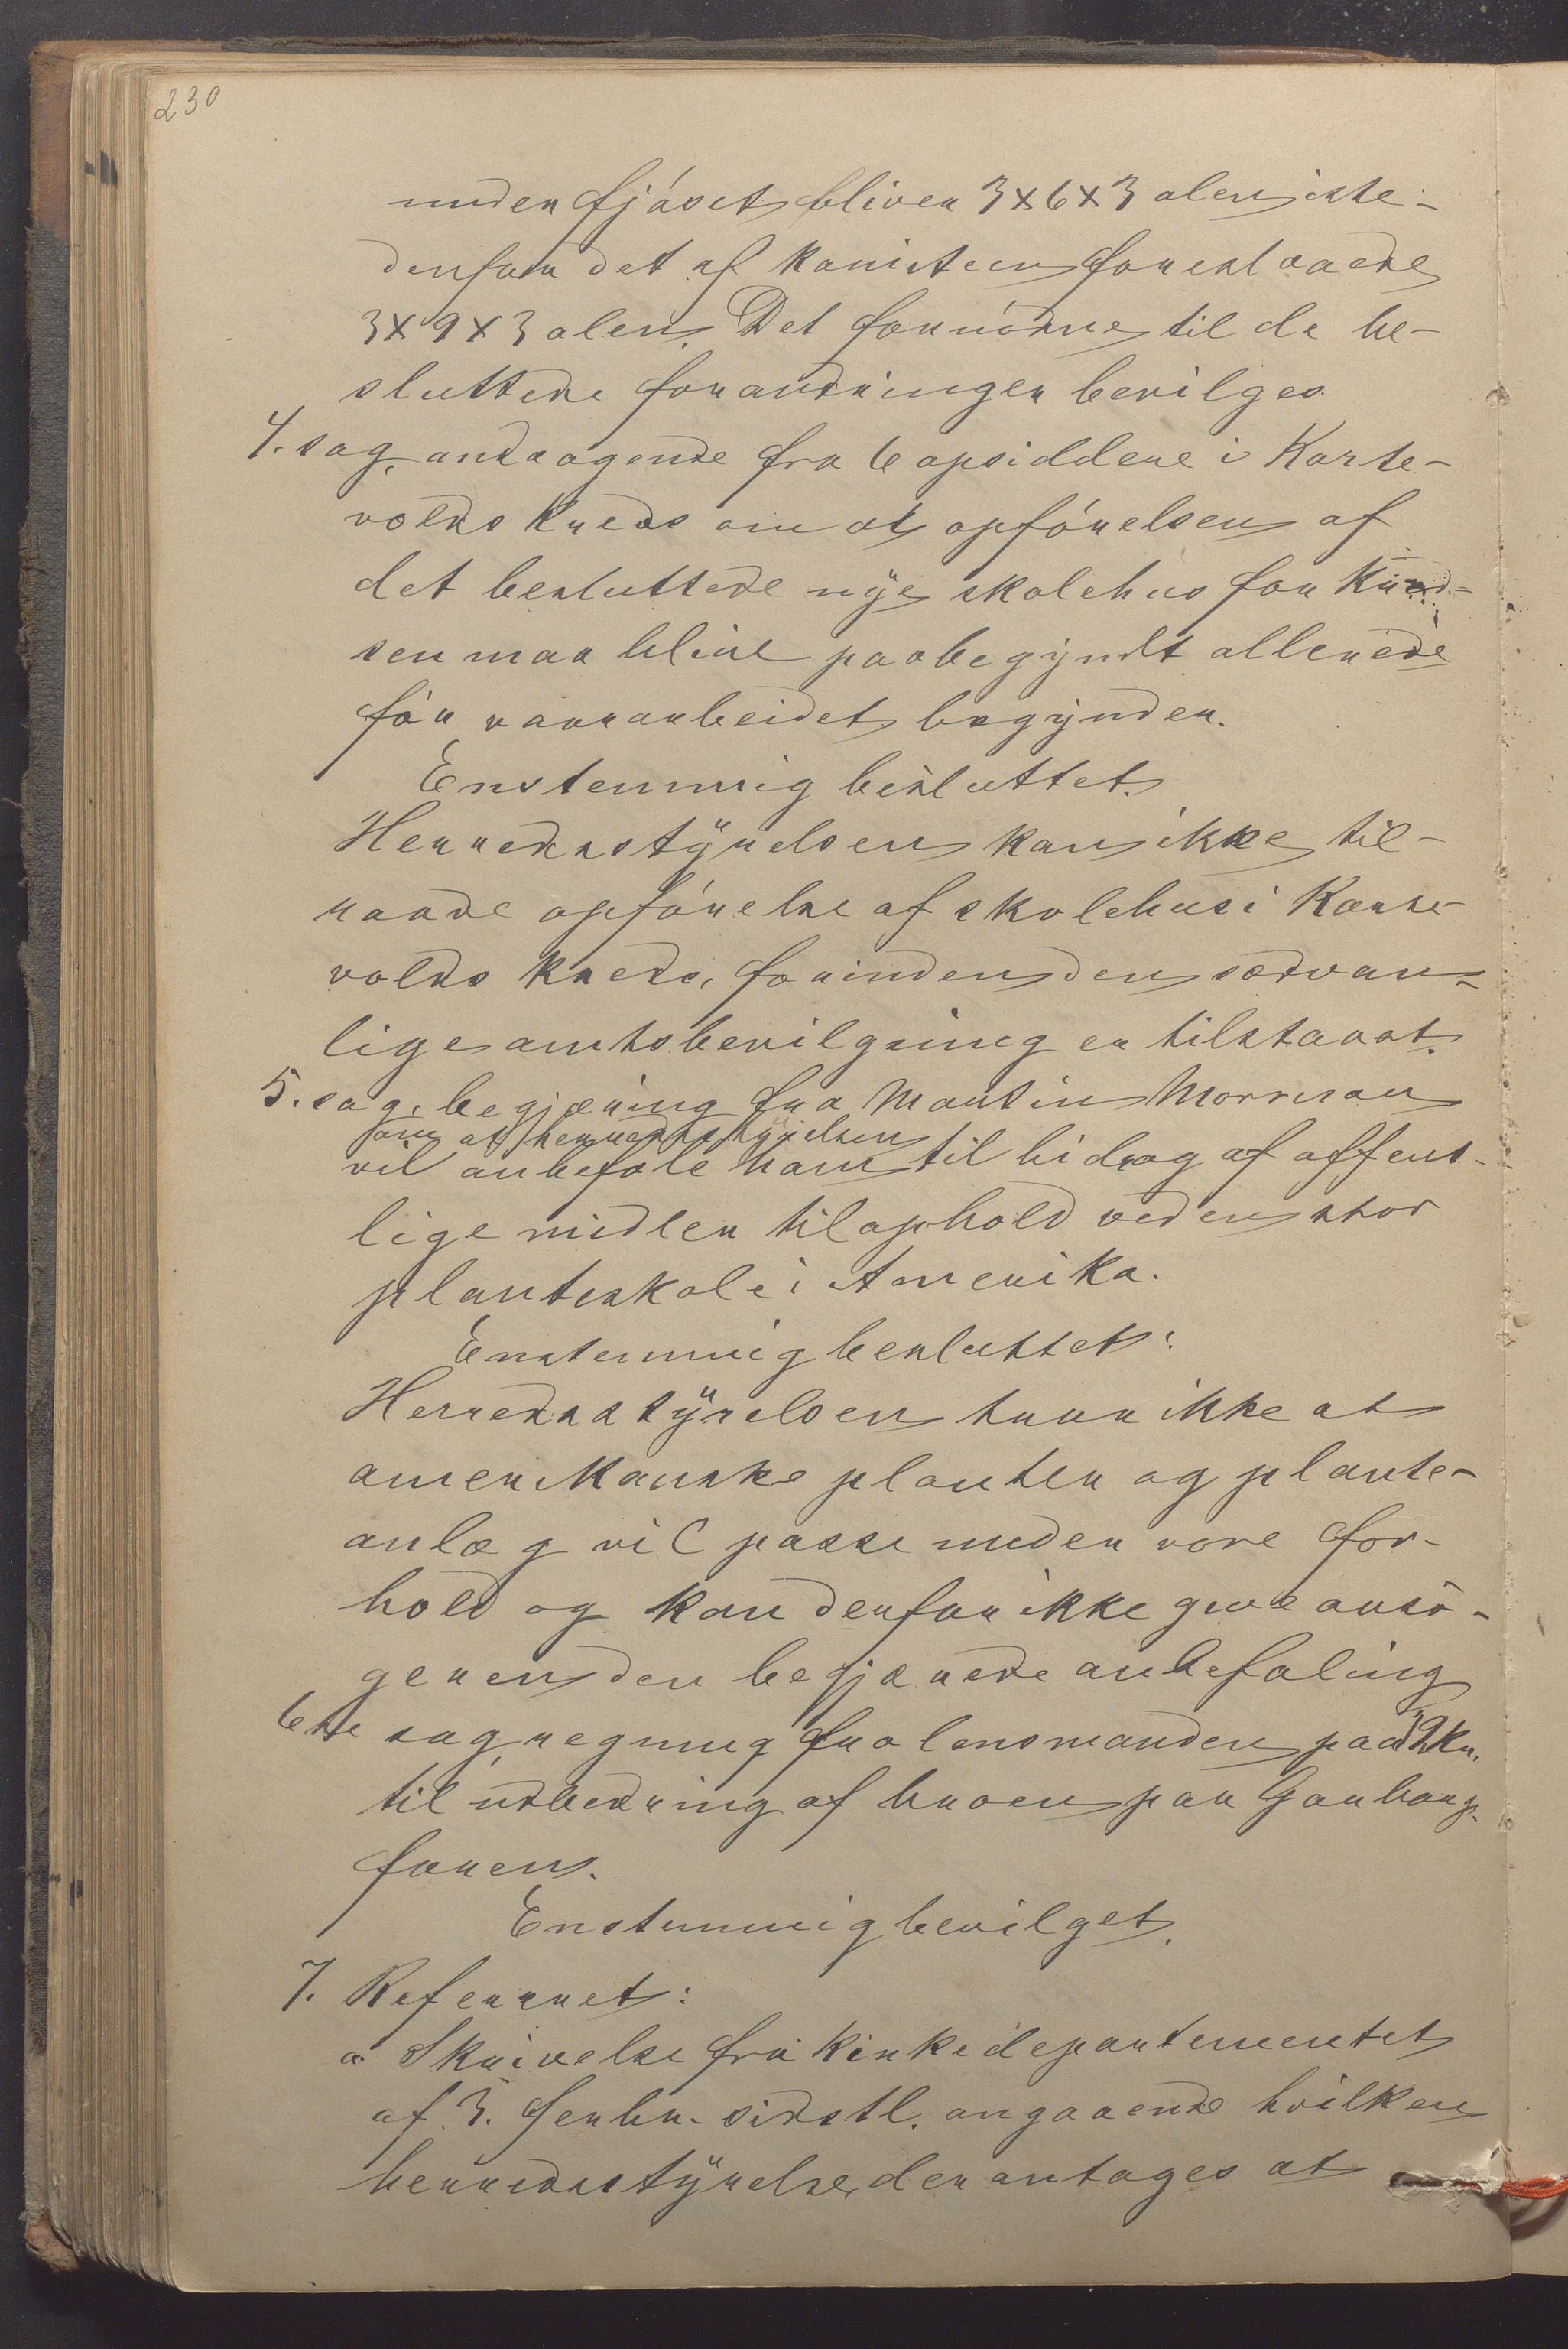 230
under fjøset bliver 3x6x3 alen iste-
denfor det af komiteen foreslaaede
3x9x3 alen. Det fornødne til de be-
sluttede forandringer bevilges.
4. sag, andragende fra 6 opsiddere i Karse-
volds kreds om at opførelsen af
det besluttede nye skolehus for kred-
sen maa blive paabegyndt allerede
før vaararbeidet begynder.
Enstemmig besluttet.
Herredsstyrelsen kan ikke til-
raade opførelse af skolehus i Karse-
volds kreds, forinden den sædvan-
lige amtsbevilgning er tilstaaet.
5. sag, begjæring fra Martin Morrison
om at herredsstyrelsen
vil anbefale ham til bidrag af offent-
lige midler til ophold ved en stor
planteskole i Amerika.
Enstemmig besluttet:
Herredsstyrelsen troor ikke at
amerikanske planter og plante-
anlæg vil passe under vore for-
hold og kan derfor ikke give ansø-
geren den begjærede anbefaling
6te sag, regning fra lensmanden paa 12 kr.
til udbedring af broen paa
faren.
Enstemmig bevilget.
7. Refereret:
a Skrivelse fra kirkedepartementet
af 3. febr. sidstl. angaaende hvilken
herredsstyrelse der antages at